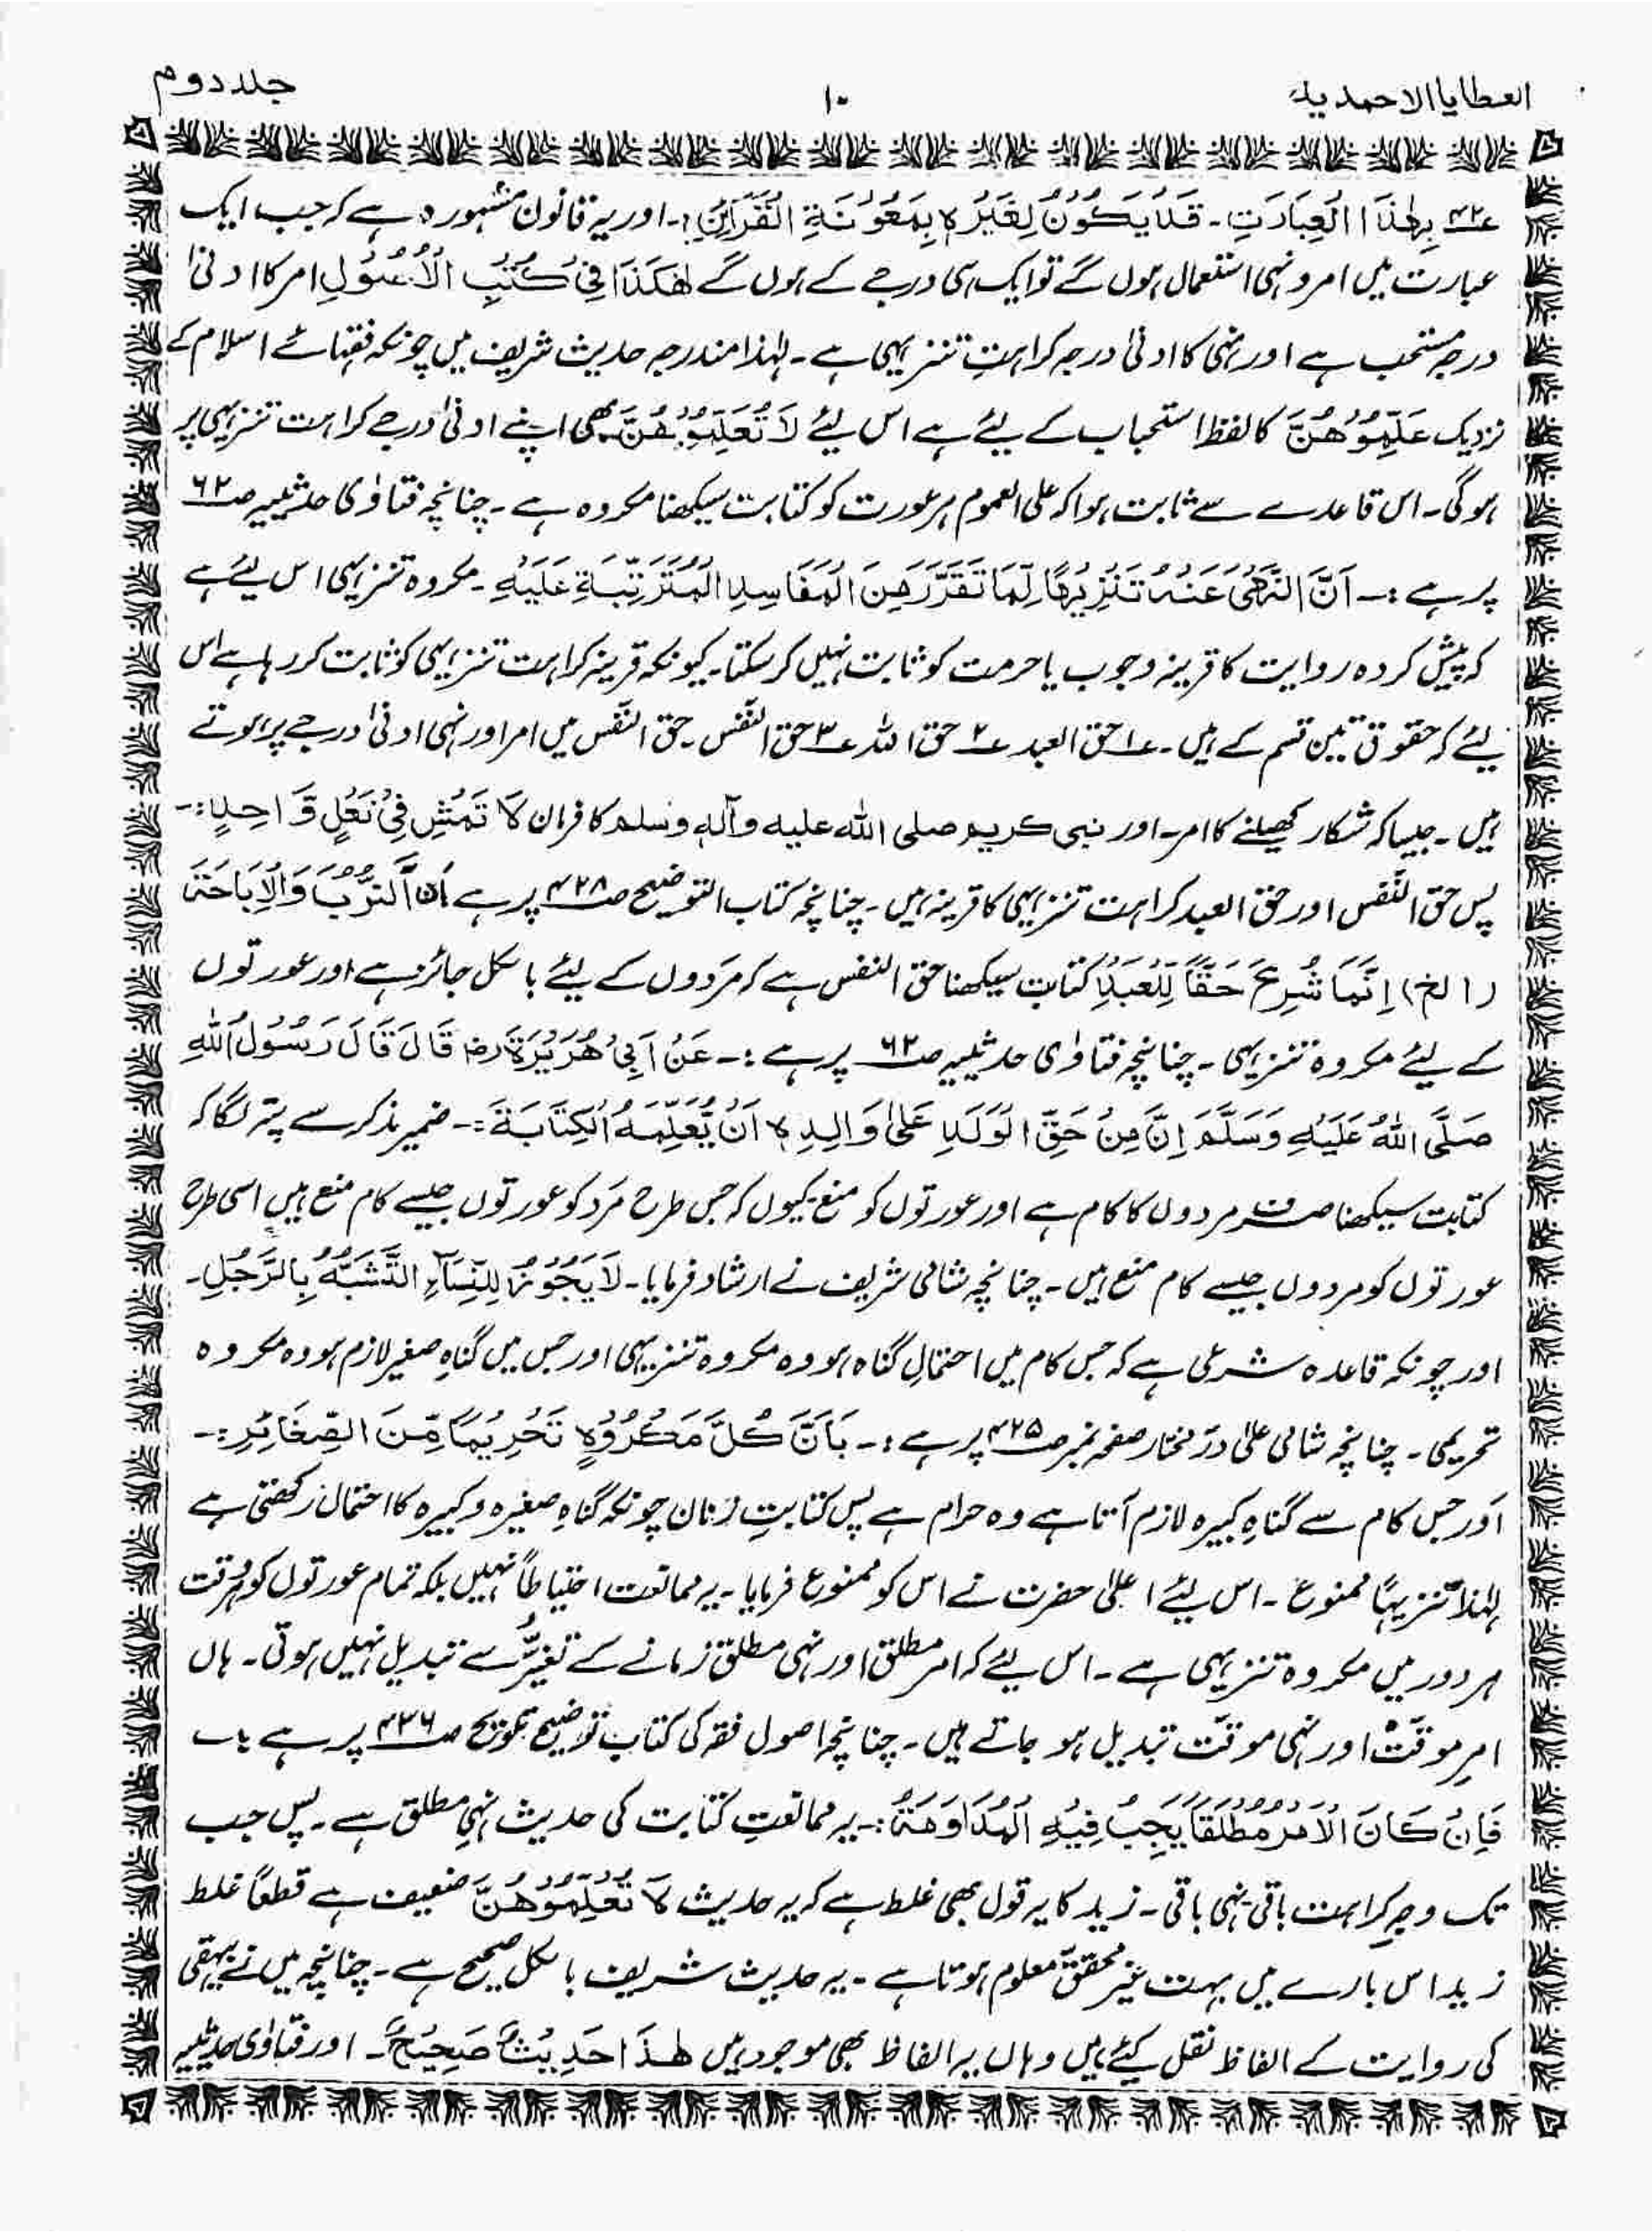 العطایا الاحمدیہ
۱۰
جلد دوم
بِهٰذَا الْعِبَارَتِ۔ قَدْ یَکُوْنُ لِغَیْرِہٖ بِمَعُوْنَۃِ الْقَرَآئِنِ:۔ اور یہ قانون مشہورہ ہے کہ جب ایک
عبارت میں امر و نہی استعمال ہوں گے تو ایک ہی درجے کے ہوں گے ھٰکَذَا فِیْ کُتُبِ الْاُصُوْلِ امر کا ادنیٰ
درجہ مستحب ہے اور نہی کا ادنیٰ درجہ کراہتِ تنزیہی ہے۔ لہٰذا مندرجہ حدیث شریف میں چونکہ فقہائے اسلام کے
نزدیک عَلِّمُوْھُنَّ کا لفظ استحباب کے لیئے ہے اس لیئے لَا تُعَلِّمُوْھُنَّ بھی اپنے ادنیٰ درجے کراہت تنزیہی پر
ہوگی۔ اس قاعدے سے ثابت ہوا کہ علی العموم ہر عورت کو کتابت سیکھنا مکروہ ہے۔ چنانچہ فتاوٰی حدیثیہ صـ۶۲
پر ہے :۔ اَنَّ النَّهْیَ عَنْهُ تَنْزِیْهًا لِّمَا تَقَرَّرَ مِنَ الْمَفَاسِدِ الْمُتَرَتِّبَۃِ عَلَیْهِ۔ مکروہ تنزیہی اس لیئے ہے
کہ پیش کردہ روایت کا قرینہ وجوب یا حرمت کو ثابت نہیں کر سکتا۔ کیونکہ قرینہ کراہت تنزیہی کو ثابت کر رہا ہے اس
لیئے کہ حقوق تین قسم کے ہیں۔ ۱؎ حق العبد ۲؎ حق اللہ ۳؎ حق النَّفس۔ حق النَّفس میں امر اور نہی ادنیٰ درجے پر ہوتے
ہیں۔ جیسا کہ شکار کھیلنے کا امر۔ اور نبی کریم صلی اللہ علیہ وآلہٖ وسلم کا فرمان لَا تَمْشِ فِیْ نَعْلٍ وَّاحِدٍ:۔
پس حق النَّفس اور حق العبد کراہت تنزیہی کا قرینہ ہیں۔ چنانچہ کتاب التوضیح صـ۴۲۸ پر ہے اَنَّ النَّدْبَ وَالْاِبَاحَۃَ
(الخ) اِنَّمَا شُرِعَ حَقًّا لِلْعَبْدِ کتابت سیکھنا حق النفس ہے کہ مَردوں کے لیئے بالکل جائز ہے اور عورتوں
کے لیئے مکروہ تنزیہی۔ چنانچہ فتاوٰی حدیثیہ صـ۶۲ پر ہے :۔ عَنْ اَبِیْ هُرَیْرَۃَ رضـ قَالَ قَالَ رَسُوْلُ اللهِ
صَلَّی اللهُ عَلَیْهِ وَسَلَّمَ اِنَّ مِنْ حَقِّ الْوَلَدِ عَلٰی وَالِدِہٖ اَنْ یُّعَلِّمَهُ الْکِتَابَۃَ:۔ ضمیر مذکر سے پتہ لگا کہ
کتابت سیکھنا صرف مردوں کا کام ہے اور عورتوں کو منع۔ کیوں کہ جس طرح مَرد کو عورتوں جیسے کام منع ہیں اسی طرح
عورتوں کو مردوں جیسے کام منع ہیں۔ چنانچہ شامی شریف نے ارشاد فرمایا۔ لَا یَجُوْزُ لِلنِّسَآءِ التَّشَبُّهُ بِالرَّجُلِ۔
اور چونکہ قاعدہ شرعی ہے کہ جس کام میں احتمالِ گناہ ہو وہ مکروہ تنزیہی اور جس میں گناہِ صغیر لازم ہو وہ مکروہ
تحریمی۔ چنانچہ شامی علٰی درّ مختار صفحہ نمبر صـ۴۲۵ پر ہے :۔ بِاَنَّ کُلَّ مَکْرُوْہٍ تَحْرِیْمًا مِّنَ الصِّغَائِرِ:۔
اَور جس کام سے گناہِ کبیرہ لازم آتا ہے وہ حرام ہے پس کتابتِ زنان چونکہ گناہِ صغیرہ و کبیرہ کا احتمال رکھتی ہے
لہٰذا تنزیہًا ممنوع۔ اس لیئے اعلیٰ حضرت نے اس کو ممنوع فرمایا۔ یہ ممانعت احتیاطاً نہیں بلکہ تمام عورتوں کو ہر وقت
ہر دور میں مکروہ تنزیہی ہے۔ اس لیئے کہ امر مطلق اور نہی مطلق زمانے کے تغیّر سے تبدیل نہیں ہوتی۔ ہاں
امرِ موقّت اور نہی موقّت تبدیل ہو جاتے ہیں۔ چنانچہ اصول فقہ کی کتاب توضیح تلویح صـ۴۳۶ پر ہے باب
فَاِنْ کَانَ الْاَمْرُ مُطْلَقًا یَجِبُ فِیْهِ الْمُدَاوَمَۃُ:۔ یہ ممانعتِ کتابت کی حدیث نہیِ مطلق ہے۔ پس جب
تک وجہِ کراہت باقی۔ نہی باقی۔ زید کا یہ قول بھی غلط ہے کہ یہ حدیث لَا تُعَلِّمُوْھُنَّ ضعیف ہے قطعاً غلط
زید اس بارے میں بہت غیر محقّق معلوم ہوتا ہے۔ یہ حدیث شریف بالکل صحیح ہے۔ چنانچہ میں نے بیہقی
کی روایت کے الفاظ نقل کیئے ہیں وہاں یہ الفاظ بھی موجود ہیں ھٰذَا حَدِیْثٌ صَحِیْحٌ۔ اور فتاوٰی حدیثیہ